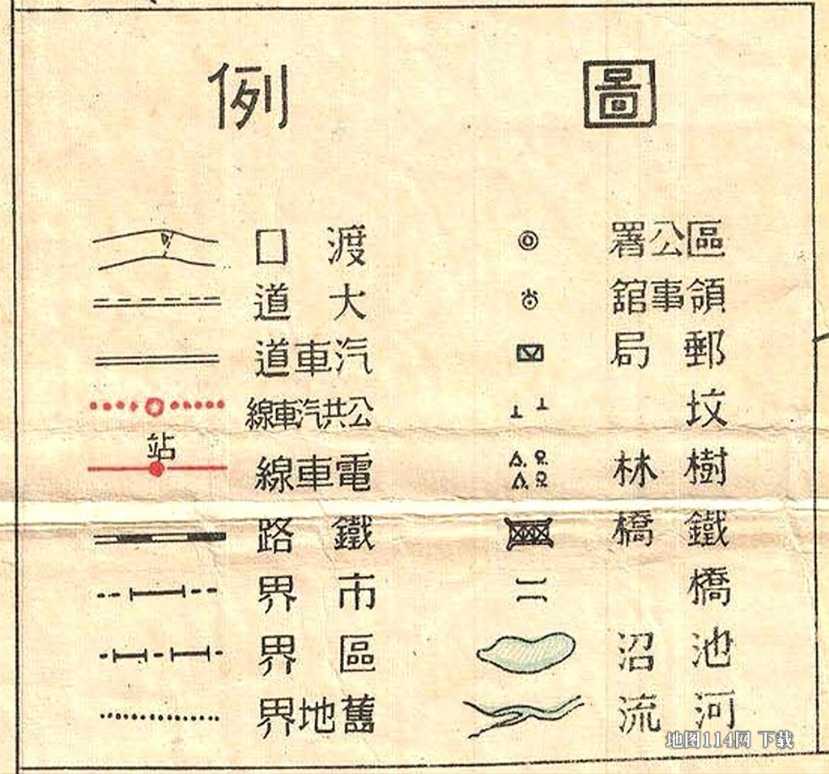 圖例
區公署
領事館
郵局
坟
樹林
鐵橋
橋
池沼
河流
渡口
大道
汽車道
公共汽車線
站
電車線
鐵路
市界
區界
舊地界
地图114网 下载